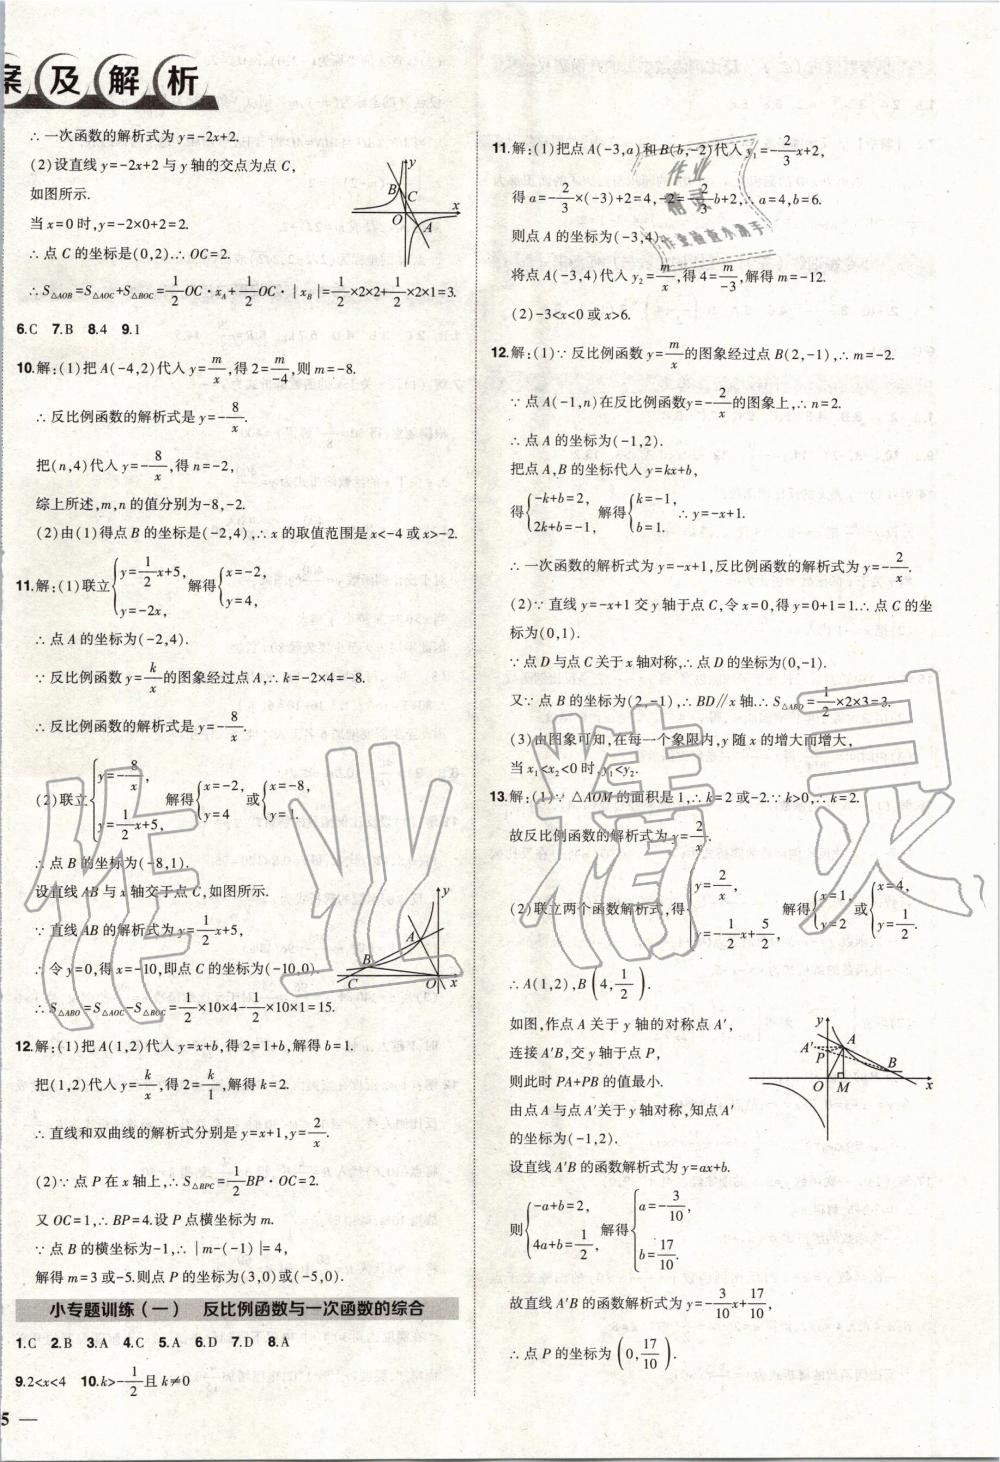 案及解析
∴一次函数的解析式为y=-2x+2.
(2)设直线y=-2x+2与y轴的交点为点C,
如图所示.
当x=0时,y=-2×0+2=2.
∴点C的坐标是(0,2).∴OC=2.
∴S△AOB=S△AOC+S△BOC=1/2 OC·xA+1/2 OC·|xB|=1/2×2×2+1/2×2×1=3.
y
B
C
O
A
x
6.C 7.B 8.4 9.1
10.解:(1)把A(-4,2)代入y=m/x,得2=m/-4,则m=-8.
∴反比例函数的解析式是y=-8/x.
把(n,4)代入y=-8/x,得n=-2,
综上所述,m,n的值分别为-8,-2.
(2)由(1)得点B的坐标是(-2,4),∴x的取值范围是x<-4或x>-2.
11.解:(1)联立{y=1/2x+5, y=-2x, 解得{x=-2, y=4,
∴点A的坐标为(-2,4).
∵反比例函数y=k/x的图象经过点A,∴k=-2×4=-8.
∴反比例函数的解析式是y=-8/x.
(2)联立{y=-8/x, y=1/2x+5, 解得{x=-2, y=4 或{x=-8, y=1.
∴点B的坐标为(-8,1).
设直线AB与x轴交于点C,如图所示.
∵直线AB的解析式为y=1/2x+5,
∴令y=0,得x=-10,即点C的坐标为(-10,0).
∴S△ABO=S△AOC-S△BOC=1/2×10×4-1/2×10×1=15.
y
A
B
C
O
x
12.解:(1)把A(1,2)代入y=x+b,得2=1+b,解得b=1.
把(1,2)代入y=k/x,得2=k/1,解得k=2.
∴直线和双曲线的解析式分别是y=x+1,y=2/x.
(2)∵点P在x轴上,∴S△BPC=1/2BP·OC=2.
又OC=1,∴BP=4.设P点横坐标为m.
∵点B的横坐标为-1,∴|m-(-1)|=4,
解得m=3或-5.则点P的坐标为(3,0)或(-5,0).
小专题训练(一) 反比例函数与一次函数的综合
1.C 2.B 3.A 4.C 5.A 6.D 7.D 8.A
9.2<x<4 10.k>-1/2且k≠0
5 —
11.解:(1)把点A(-3,a)和B(b,-2)代入y1=-2/3x+2,
得a=-2/3×(-3)+2=4,-2=-2/3b+2,∴a=4,b=6.
则点A的坐标为(-3,4).
将点A(-3,4)代入y2=m/x,得4=m/-3,解得m=-12.
(2)-3<x<0或x>6.
12.解:(1)∵反比例函数y=m/x的图象经过点B(2,-1),∴m=-2.
∵点A(-1,n)在反比例函数y=-2/x的图象上,∴n=2.
∴点A的坐标为(-1,2).
把点A,B的坐标代入y=kx+b,
得{-k+b=2, 2k+b=-1, 解得{k=-1, b=1. ∴y=-x+1.
∴一次函数的解析式为y=-x+1,反比例函数的解析式为y=-2/x.
(2)∵直线y=-x+1交y轴于点C,令x=0,得y=0+1=1.∴点C的坐
标为(0,1).
∵点D与点C关于x轴对称,∴点D的坐标为(0,-1).
又∵点B的坐标为(2,-1),∴BD∥x轴.∴S△ABD=1/2×2×3=3.
(3)由图象可知,在每一个象限内,y随x的增大而增大,
当x1<x2<0时,y1<y2.
13.解:(1)∵△AOM的面积是1,∴k=2或-2.∵k>0,∴k=2.
故反比例函数的解析式为y=2/x.
(2)联立两个函数解析式,得{y=2/x, y=-1/2x+5/2, 解得{x=1, y=2 或{x=4, y=1/2.
∴A(1,2),B(4,1/2).
如图,作点A关于y轴的对称点A′,
连接A′B,交y轴于点P,
则此时PA+PB的值最小.
由点A与点A′关于y轴对称,知点A′
的坐标为(-1,2).
设直线A′B的函数解析式为y=ax+b.
则{-a+b=2, 4a+b=1/2, 解得{a=-3/10, b=17/10.
故直线A′B的函数解析式为y=-3/10x+17/10,
∴点P的坐标为(0,17/10).
y
A′
A
P
B
O
M
x
作业精灵
作业检查小高手
作业精灵